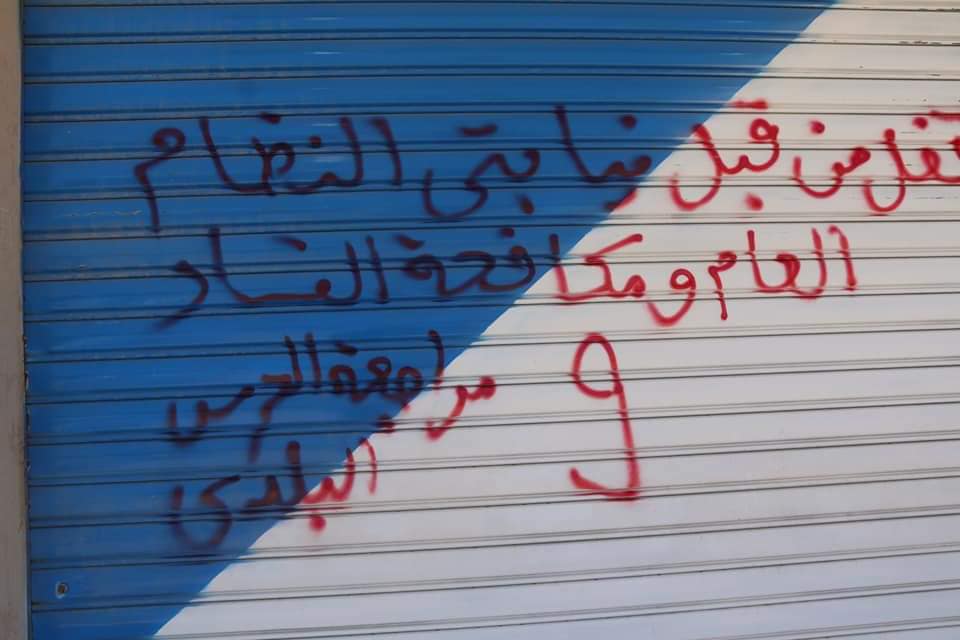 قفل من قبل نيابتى النظام
العام و مكافحة الفساد
و مراجعة الحرس
البلدى